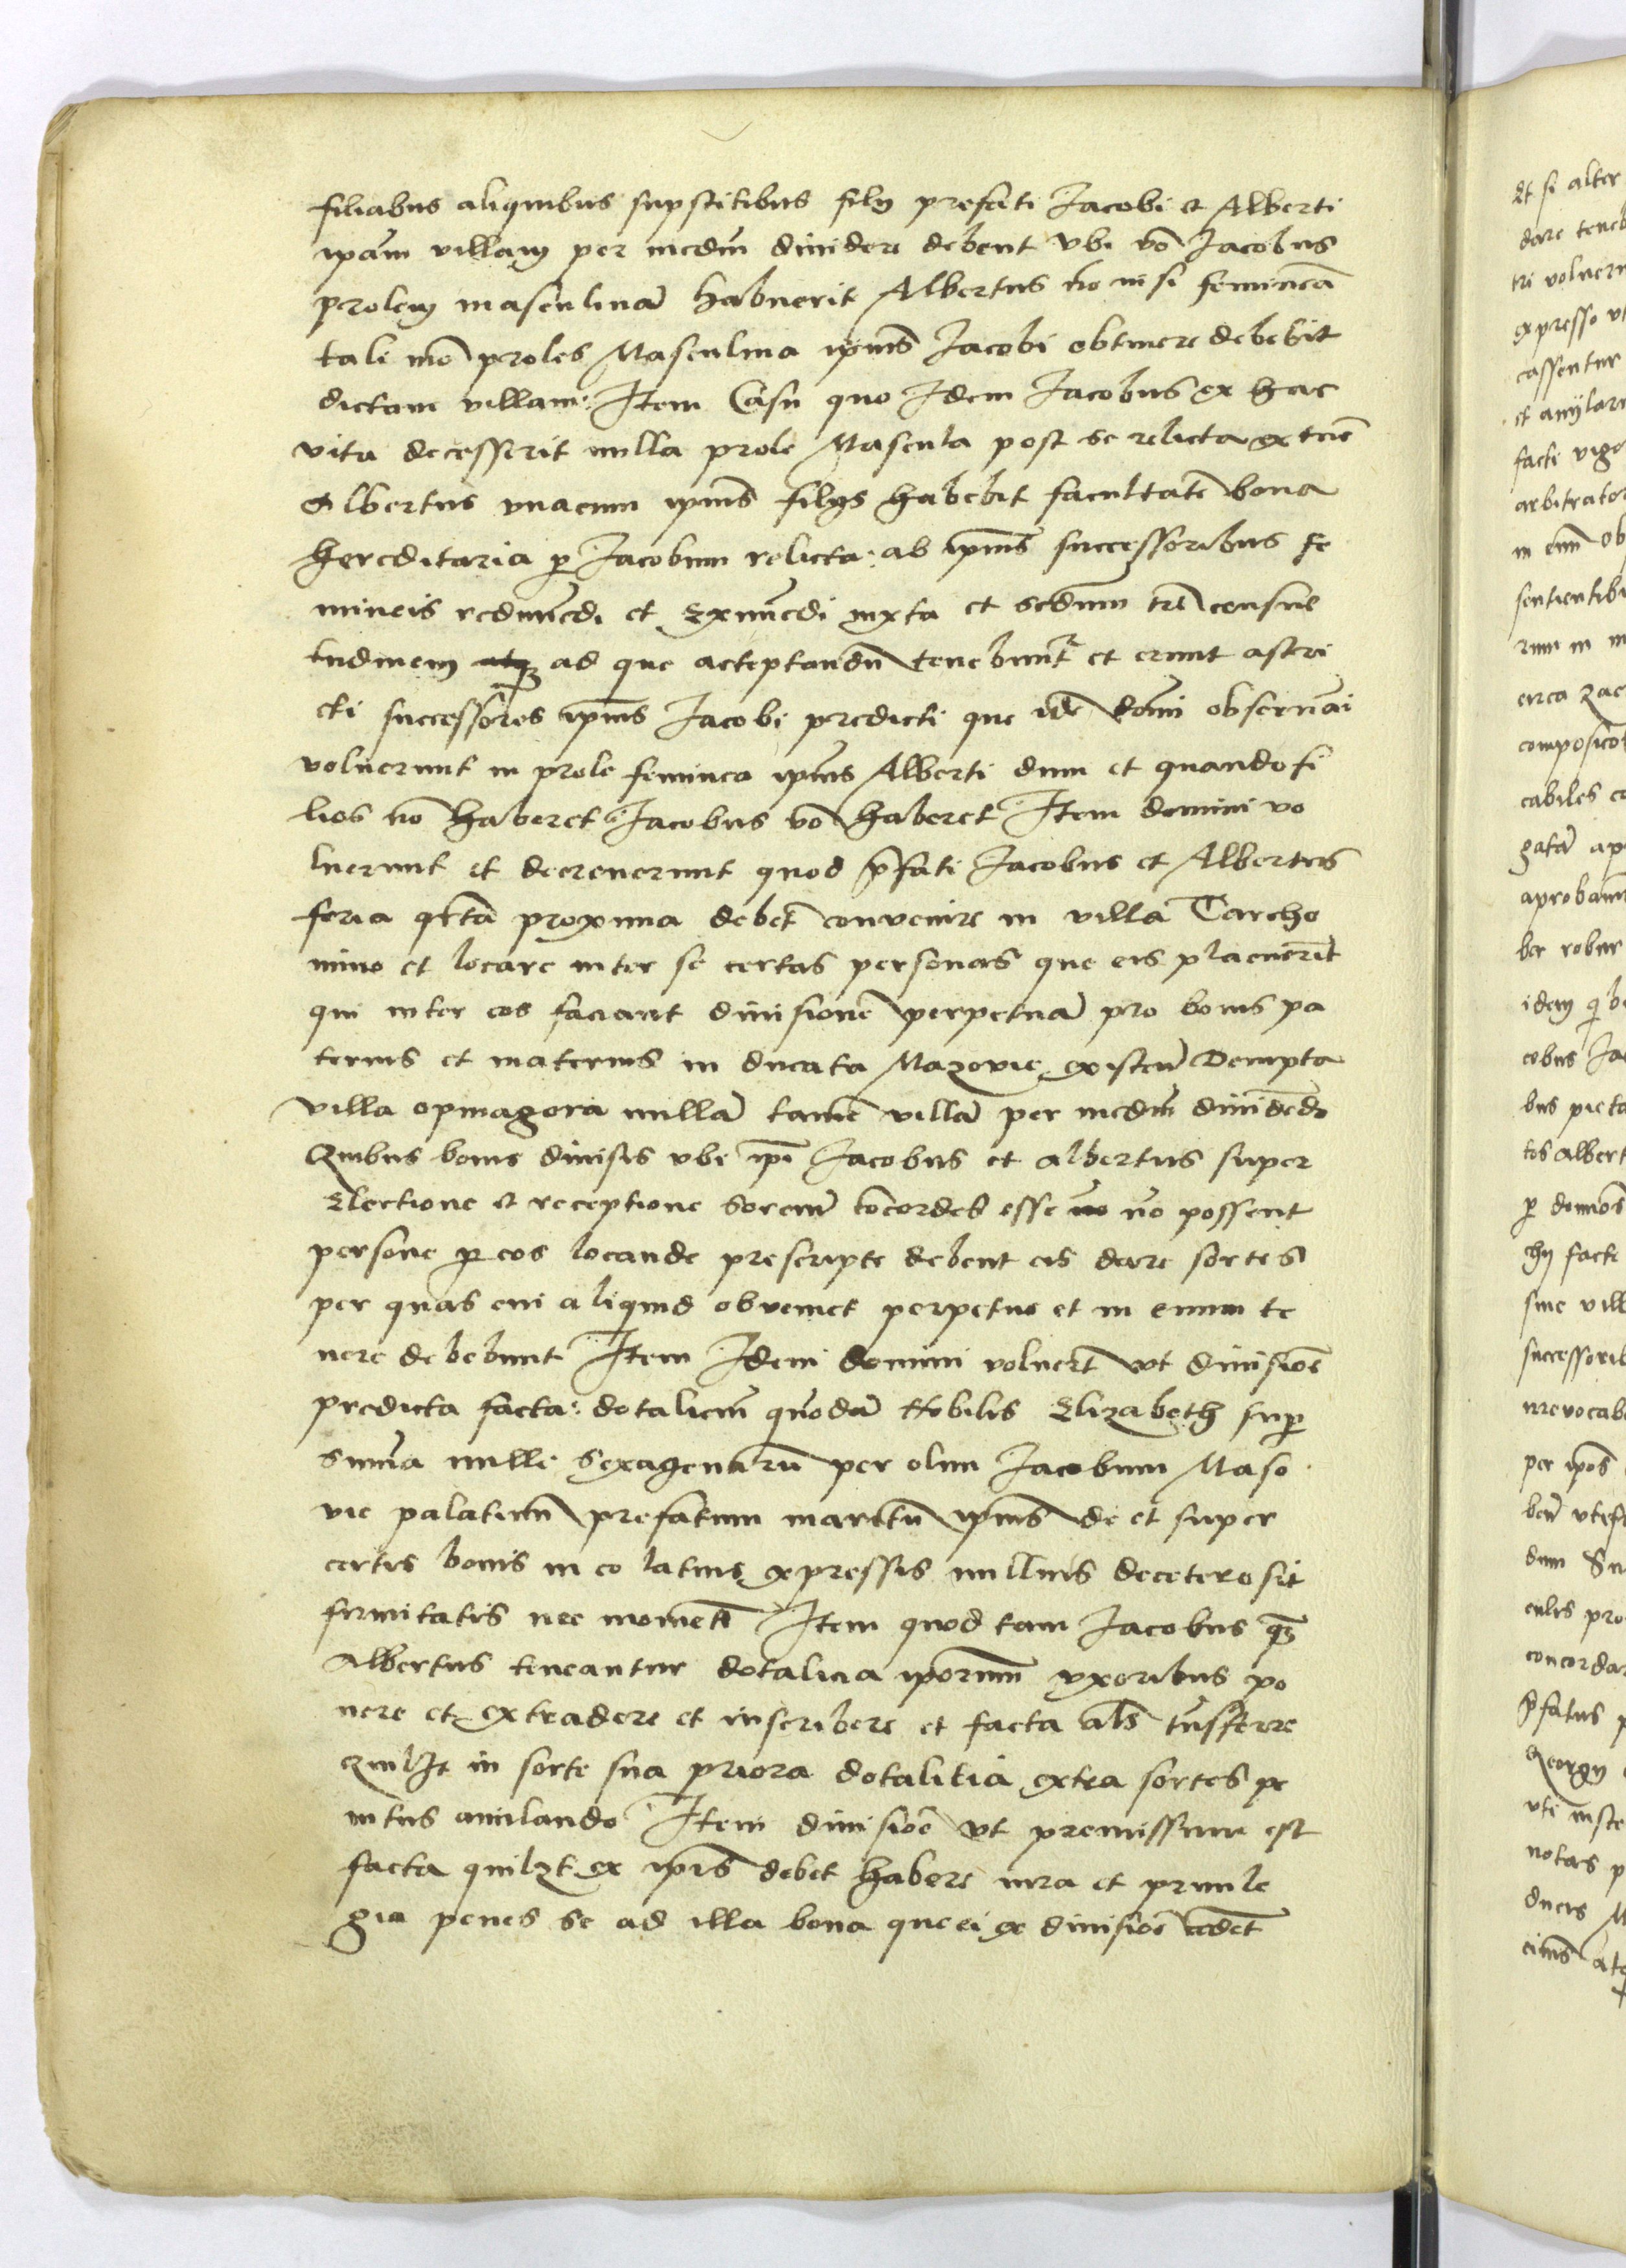 filiabus aliquibus supstitibus filij prefati Jacobi et Alberti
ipam villam per mediu dimidere debent vbi vo Jacobus
prolem masculina habuerit Albertus no nisi feminea
tali mo proles Masculina ipius Jacobi obtinere debebit
dictam villam: Item Casu quo Idem Jacobus ex hac
vita decesserit nulla prole Mascula post se relicta extuc
Albertus vnacum ipius filijs habebit facultate bona
hereditaria p Jacobum relicta: ab ipius successoribus fe
mineis redimedi et Eximedi iuxta et scdum tre consue
tudinem ad que acceptandu tenebuntr et erunt astri
cti successores ipius Jacobi predicti que ide domi observari
voluerunt in prole feminea ipius Alberti dum et quando fi
lios no haberet Jacobus vo haberet Item domini vo
luerunt et decreuerunt quod pfati Jacobus et Albertus
feria qrta proxima debet convenire in villa Tarcho
mino et locare inter se certas personas que eis placuerit
qui inter eos faciant diuisione perpetua pro bonis pa
ternis et maternis in ducatu Mazovie existen Dempta
villa opinagora nulla tame villa per mediu diuidedo
Quibus bonis diuisis vbi ipi Jacobus et albertus super
Electione et receptione sorcium cocordes esse no possent
persone p eos locande prescripte debent eis dare sortes
per quas cui aliquid obveniet perpetuo et in euum te
nere debebunt Item Idem domini voluert vt diuisioe
predicta facta: dotalicm quoda Nobilis Elizabeth sup
summa mille sexagenaru per olim Jacobum Maso
vie palatinu prefatum maritu ipius de et super
certis bonis in eo latius expressis nullius decetero sit
firmitatis nec momenti Item quod tam Jacobus qz
Albertus teneantur dotalicia iporum vxoribus po
nere et extradere et inscribere et facta als tnsferre
quilzt in sorte sua priora dotalitia extra sortes pe
nitus anilando Item diuisioe vt premissum est
facta quilzt ex ipis debet habere iura et priuile
gia penes se ad illa bona que ei ex diuisioe cedet

Et si alter
dare teneb
tri voluern
expresso vt
cassentur
et anijlari
facti vigo
arbitrator
in eum ob
sentientibu
rum in m
circa zac
composicot
cabiles co
gata ap
aprobam
ber robur
idem q be
cobus Ja
bus picta
tis albert
p domos
chij facte
sine vill
successorib
irrevocab
per ipos
ben vtrifs
dum Su
culis pro
concordar
pfatus p
Georgij
vti inste
notas p
ducis M
cimus atq